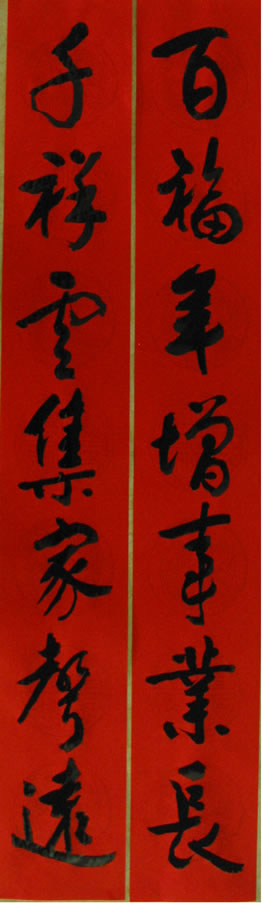 百福年增事業長
千祥雲集家聲遠